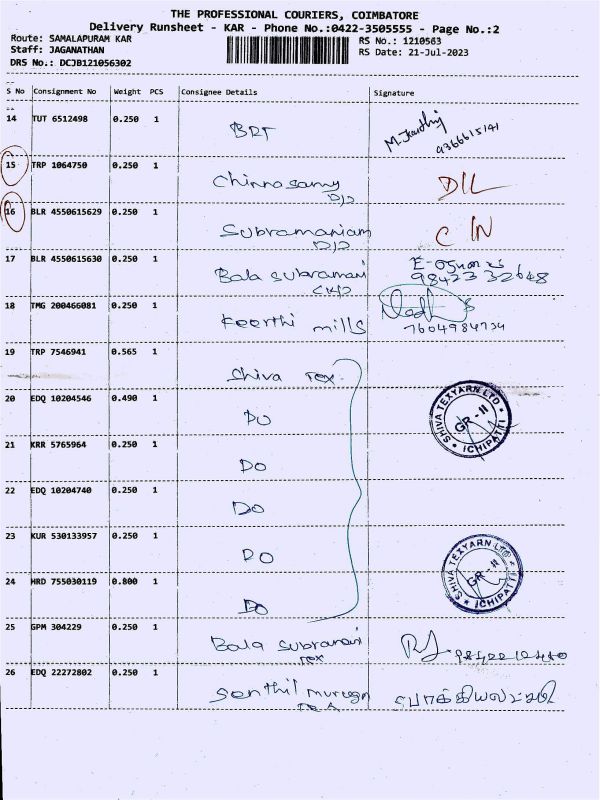 THE PROFESSIONAL COURIERS, COIMBATORE
Delivery Runsheet - KAR - Phone No.:0422-3505555 - Page No.:2
Route: SAMALAPURAM KAR RS No.: 1210563
Staff: JAGANATHAN RS Date: 21-Jul-2023
DRS No.: DCJB121056302
S No Consignment No Weight PCS Consignee Details Signature
14 TUT 6512498 0.250 1 BRT 9366615141
15 TRP 1064750 0.250 1 Chinnasamy DIL
16 BLR 4550615629 0.250 1 Subramaniam C IN
17 BLR 4550615630 0.250 1 Bala subramani 98423 32648
18 TMG 200466081 0.250 1 Keerthi mills 7604984734
19 TRP 7546941 0.565 1 Shiva Tex.
20 EDQ 10204546 0.490 1 DO
SHIVA TEXYARN LTD GR - II ICHIPATTI
21 KRR 5765964 0.250 1 DO
22 EDQ 10204740 0.250 1 DO
23 KUR 530133957 0.250 1 DO
24 HRD 755030119 0.800 1 DO
SHIVA TEXYARN LTD GR - II ICHIPATTI
25 GPM 304229 0.250 1 Bala subramani Tex
26 EDQ 22272802 0.250 1 Senthil murugan